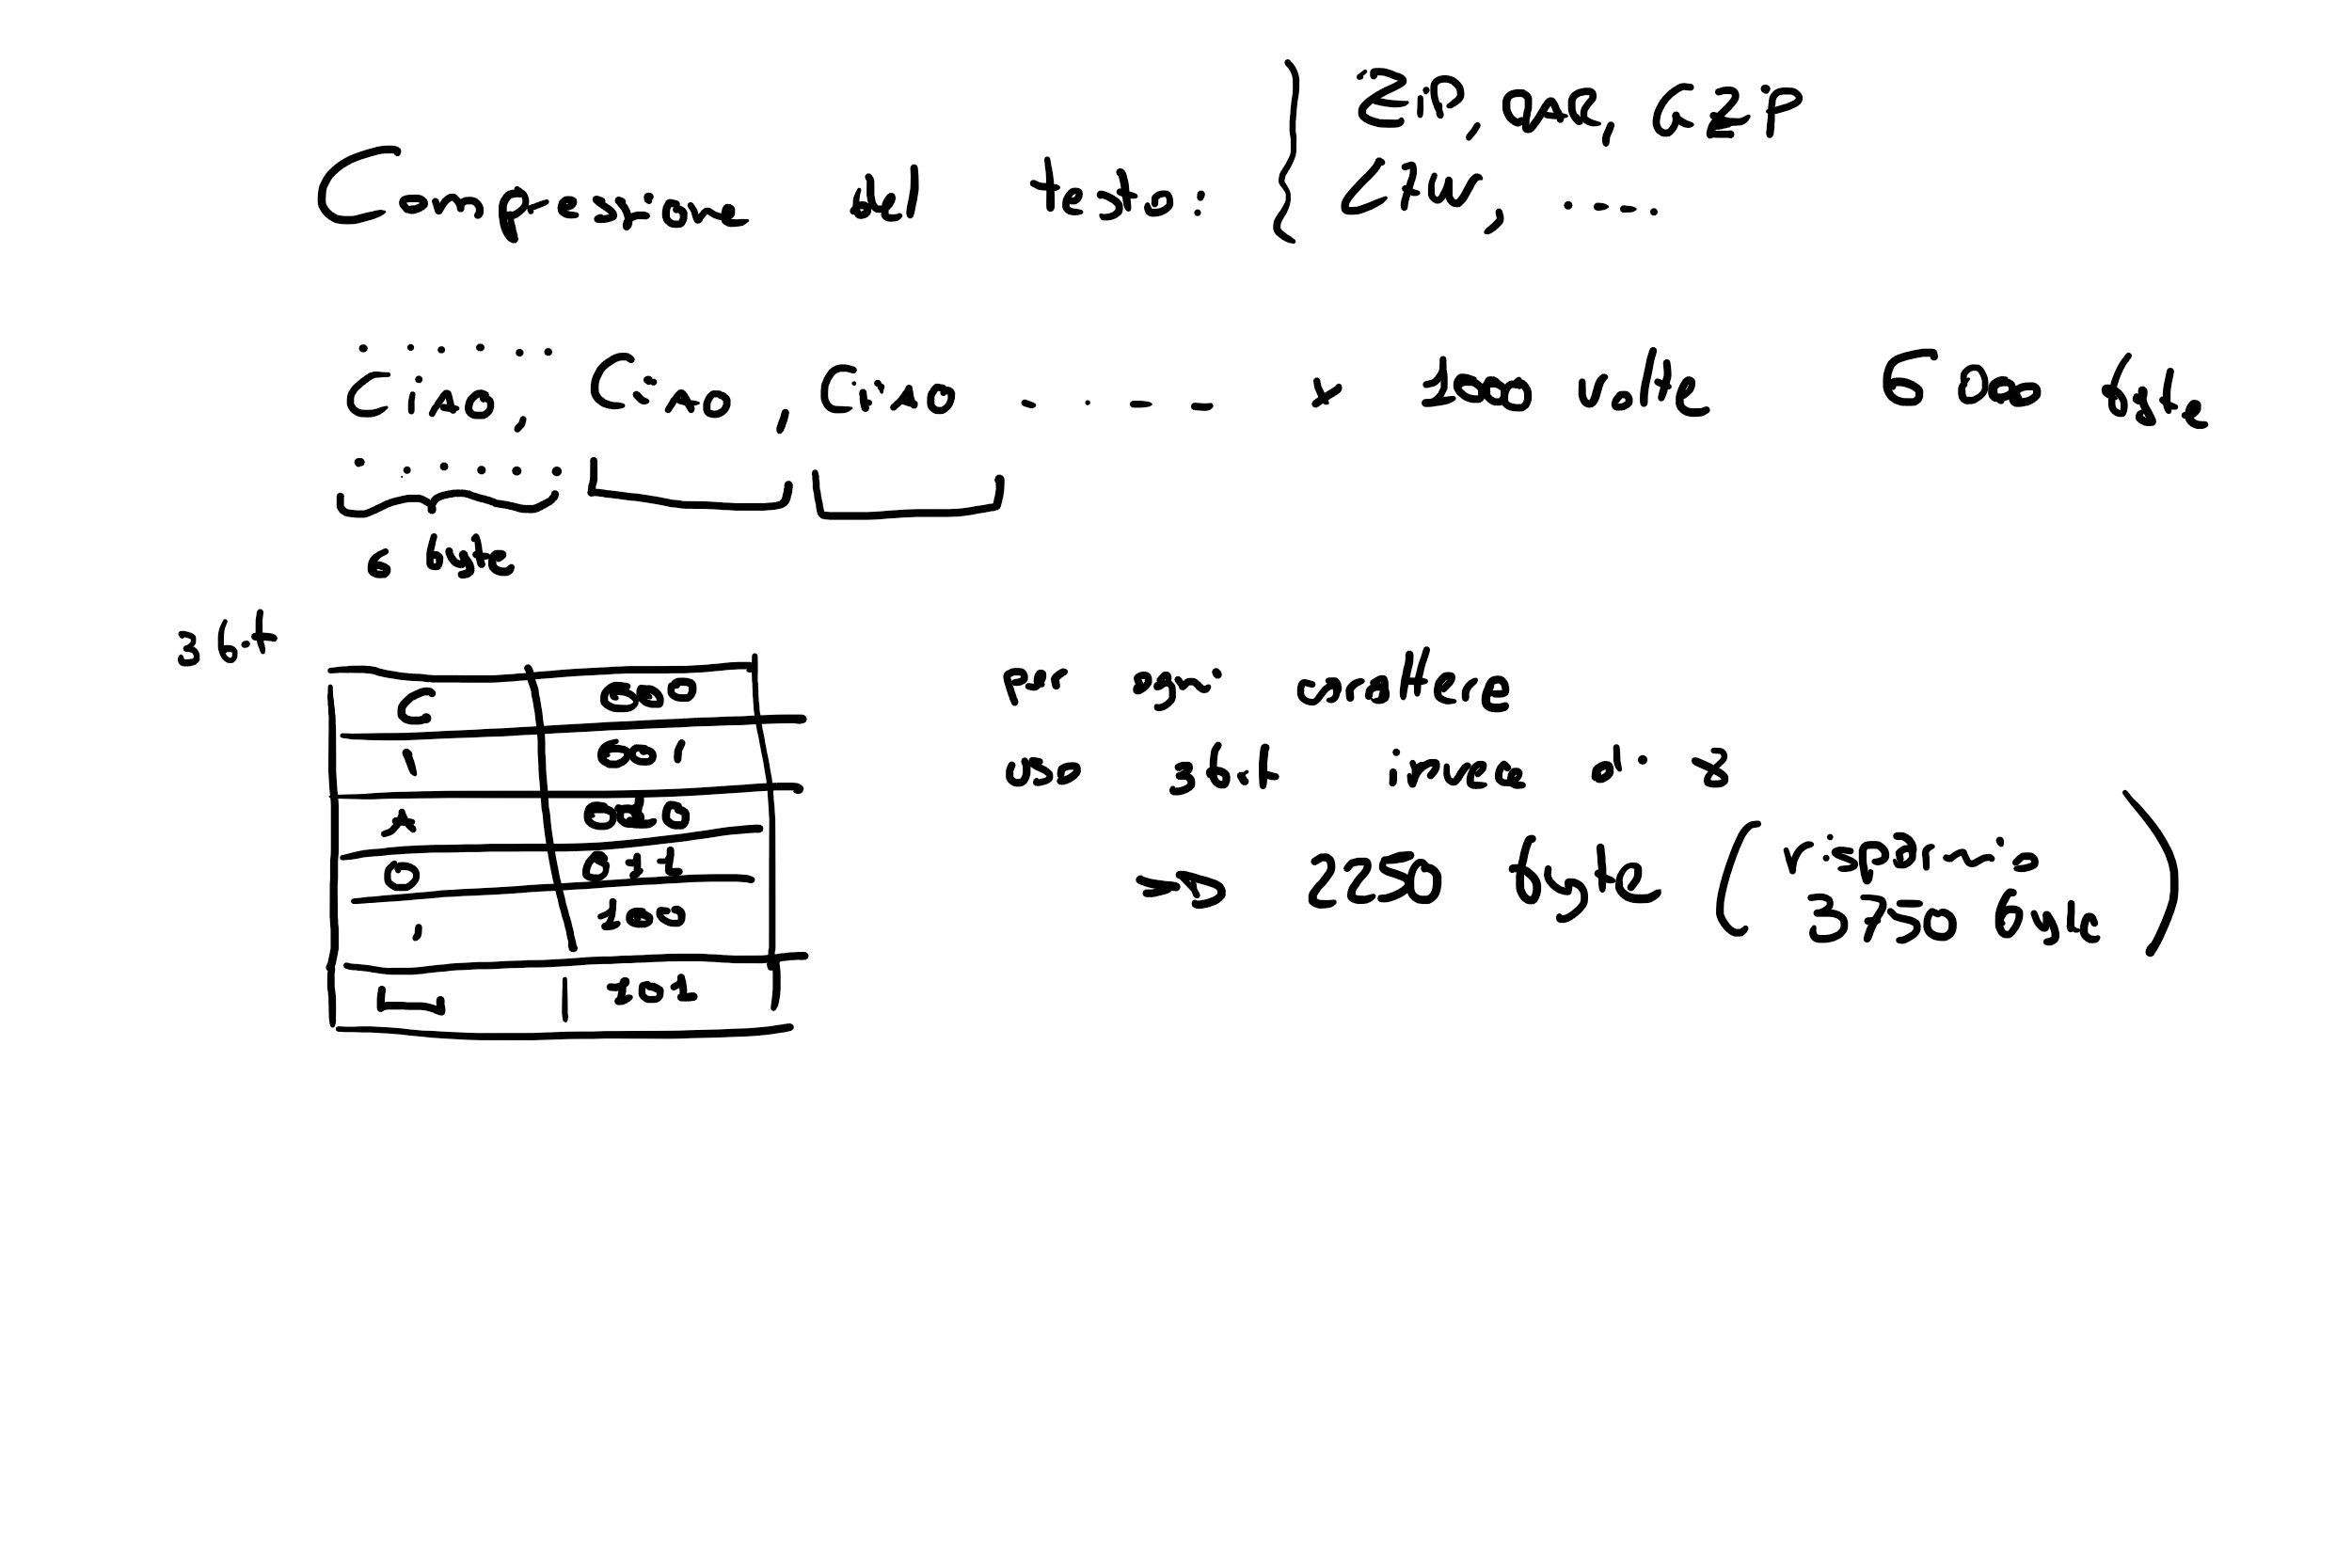 Compressione del testo: ZIP, RAR, GZIP
LZW, .....
Ciao, Ciao, Ciao .... x 1000 volte 6000 byte
6 byte
3 bit
C 000
i 001
A 010
O 011
, 100
␣ 101
per ogni carattere
uso 3 bit invece di 8
=> 2250 byte ( risparmio
3750 byte )